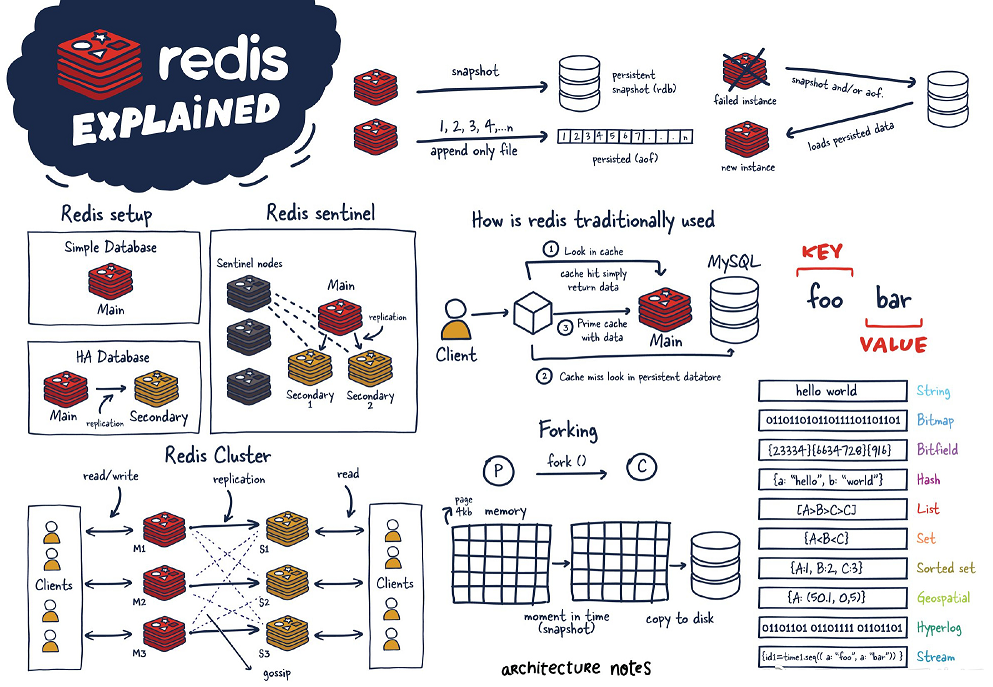 redis
EXPLAINED
snapshot
persistent
snapshot (rdb)
1, 2, 3, 4,...n
append only file
1 2 3 4 5 6 7 . . . n
persisted (aof)
failed instance
snapshot and/or aof.
loads persisted data
new instance
Redis setup
Simple Database
Main
HA Database
Main
replication
Secondary
Redis sentinel
Sentinel nodes
Main
replication
Secondary
1
Secondary
2
How is redis traditionally used
1 Look in cache
cache hit simply
return data
MySQL
Client
3 Prime cache
with data
Main
2 Cache miss look in persistent datatore
KEY
foo bar
VALUE
Redis Cluster
read/write
replication
read
Clients
M1
M2
M3
S1
S2
S3
Clients
gossip
Forking
P
fork ()
C
page
4kb
memory
moment in time
(snapshot)
copy to disk
hello world String
011011010110111101101101 Bitmap
{23334}{6634728}{916} Bitfield
{a: "hello", b: "world"} Hash
[A>B>C>C] List
{A<B<C} Set
{A:1, B:2, C:3} Sorted set
{A: (50.1, 0,5)} Geospatial
01101101 01101111 01101101 Hyperlog
{id1=time1.seq(( a: "foo", a: "bar")) } Stream
architecture notes